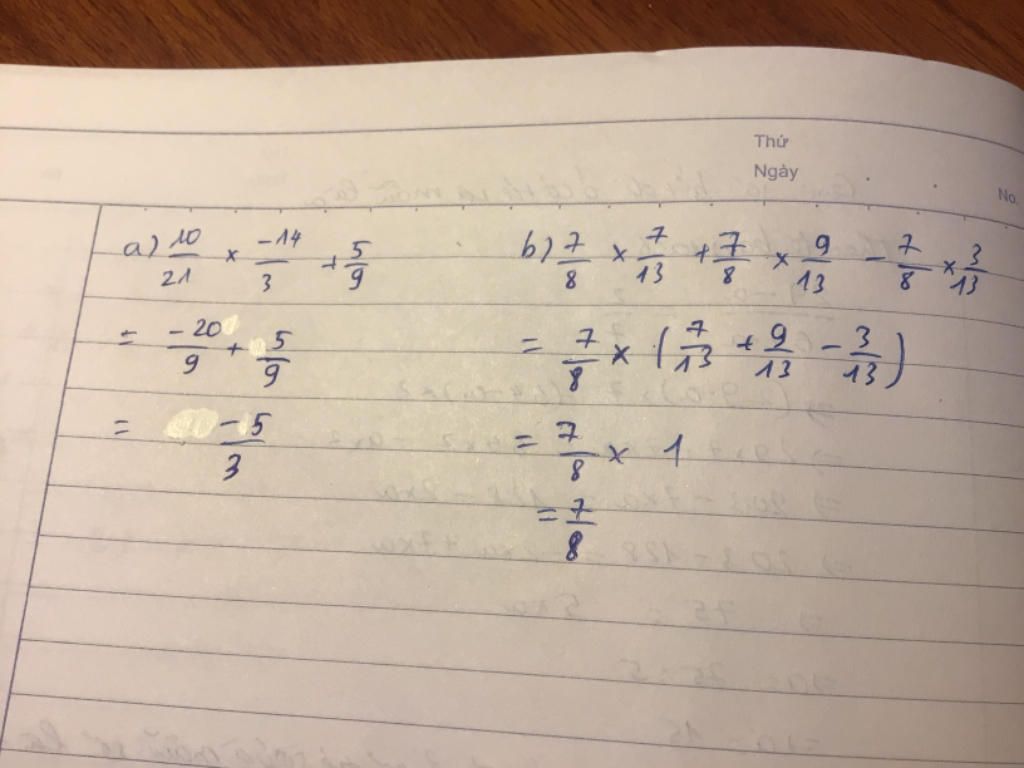 Thứ
Ngày
No.
a) 10/21 × -14/3 + 5/9
= -20/9 + 5/9
= -5/3
b) 7/8 × 7/13 + 7/8 × 9/13 - 7/8 × 3/13
= 7/8 × (7/13 + 9/13 - 3/13)
= 7/8 × 1
= 7/8